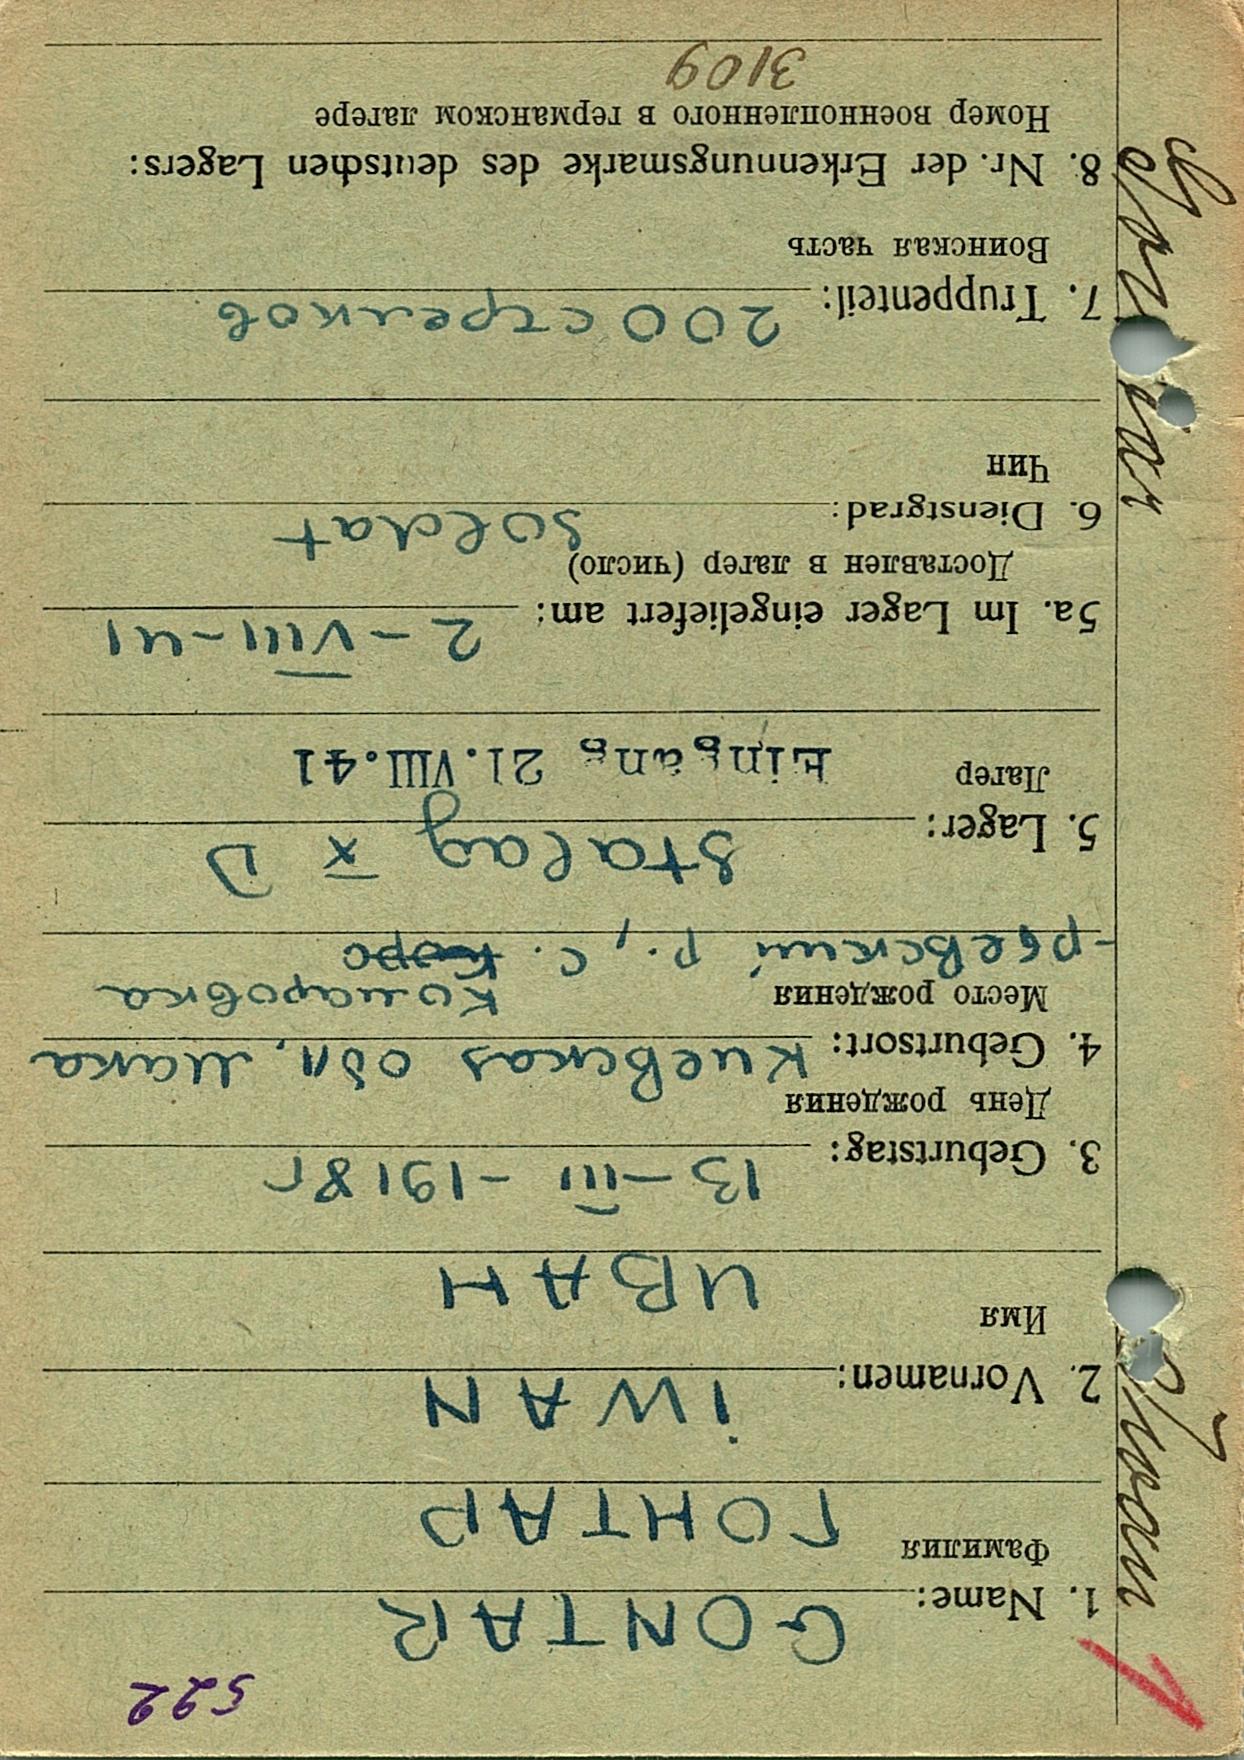 522
1
1. Name: GONTAR
Фамилия ГОНТАР
2. Vornamen: iWAN
Имя ИВАН
3. Geburtstag: 13-III-1918г
День рождения
4. Geburtsort: Киевская обл, Мака
Место рождения
-рьевский р., с. Комаровка
5. Lager: Stalag X D
Лагерь Eingang 21.VIII.41
5a. Im Lager eingeliefert am: 2-VIII-41
Доставлен в лагер (число)
6. Dienstgrad: Soldat
Чин
7. Truppenteil: 200 стрелков
Воинская часть
8. Nr. der Erkennungsmarke des deutschen Lagers:
Номер военнопленного в германском лагере
3109
Iwan